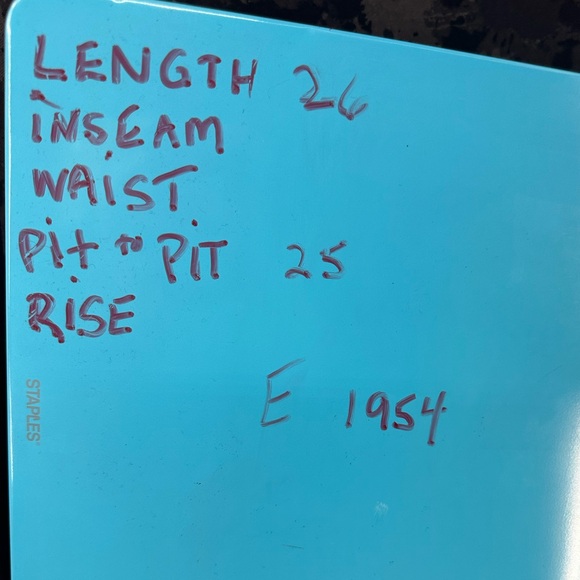 LENGTH 26
INSEAM
WAIST
PIT to PIT 25
RISE
E 1954
STAPLES